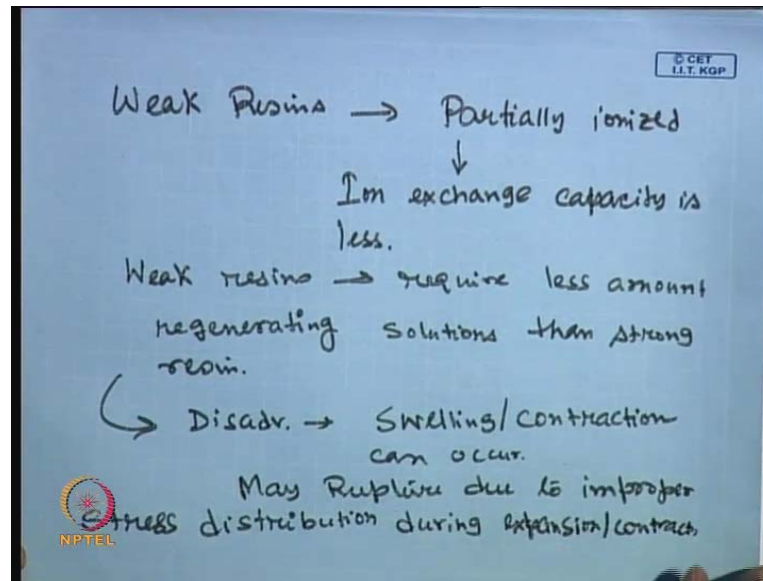 © CET
I.I.T. KGP
Weak Resins → Partially ionized
↓
Ion exchange capacity is
less.
Weak resins → require less amount
regenerating solutions than strong
resin.
Disadv. → Swelling/contraction
can occur.
May Rupture due to improper
stress distribution during expansion/contract.
NPTEL